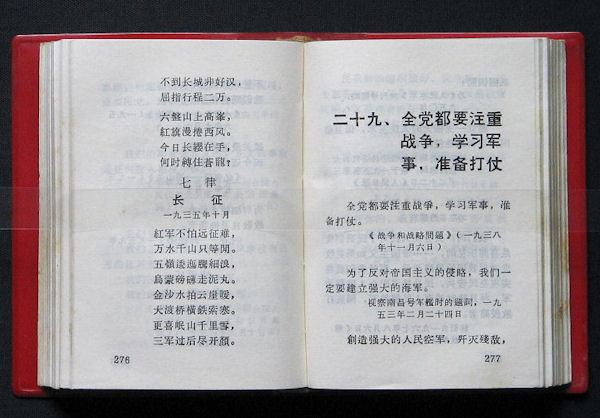 不到长城非好汉，
屈指行程二万。
六盤山上高峯，
紅旗漫捲西风。
今日长纓在手，
何时縛住苍龍？
七律
长征
一九三五年十月
紅军不怕远征难，
万水千山只等閒。
五嶺逶迤騰細浪，
烏蒙磅礴走泥丸。
金沙水拍云崖暖，
大渡桥横鉄索寒。
更喜岷山千里雪，
三军过后尽开顏。
276
二十九、全党都要注重
战争，学习军
事，准备打仗
全党都要注重战争，学习军事，准
备打仗。
《战争和战略問题》（一九三八
年十一月六日）
为了反对帝国主义的侵略，我们一
定要建立强大的海军。
视察南昌号军舰时的题詞，一九
五三年二月二十四日
創造强大的人民空军，歼灭残敌，
277